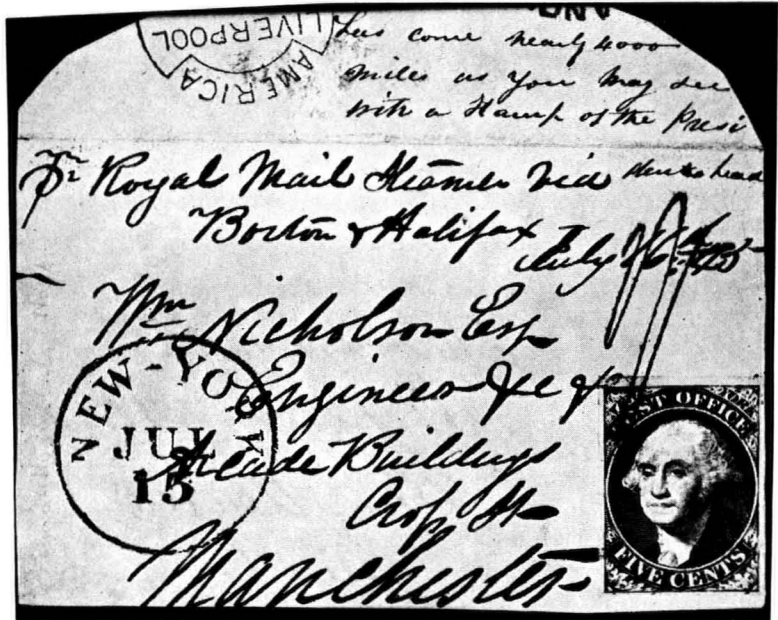 LIVERPOOL
AMERICA
has come nearly 4000
miles as you may see
with a Stamp of the Presi
dents head
Pr Royal Mail Steamer via
Boston & Halifax
July 16th 1845
Wm Nicholson Esq
Engineer &c &c
Arcade Buildings
Cross St
Manchester
NEW-YORK
JUL
15
POST OFFICE
FIVE CENTS